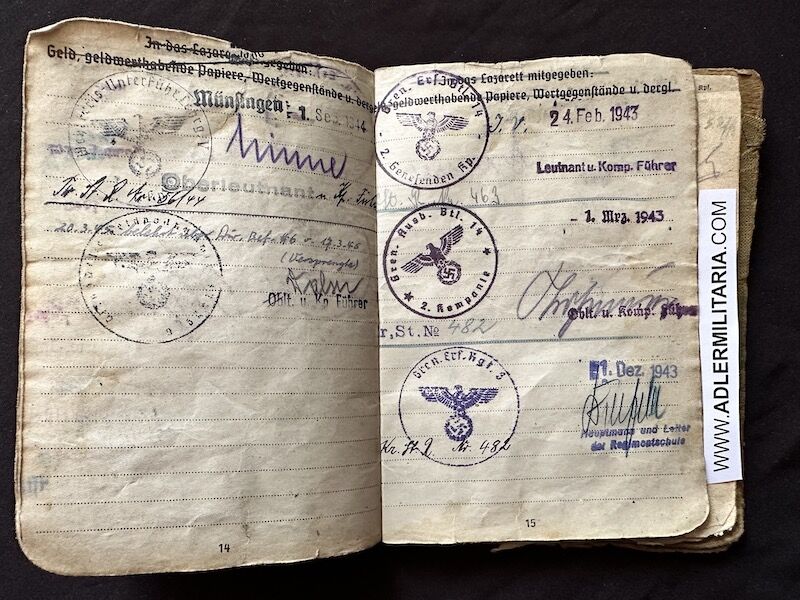 In das Lazarett mitgegeben:
Geld, geldwerthabende Papiere, Wertgegenstände u. dergl.
Münsingen - 1. Sep. 1944
Oberleutnant u. Kp. Führer
20.3.45 belehrt über Div. Bef. 46 v. 17.3.45
(Versprengte)
Oblt. u. Kp Führer
14
In das Lazarett mitgegeben:
geldwerthabende Papiere, Wertgegenstände u. dergl.
Gren. Ers. Btl. 14
2. Genesenden Kp.
I. V. 24. Feb. 1943
Leutnant u. Komp. Führer
463
Gren. Ausb. Btl. 14
2. Kompanie
- 1. Mrz. 1943
Oblt. u. Komp. Führer
r. St. № 482
Gren. Ers. Rgt. 5
1. Dez. 1943
Hauptmann und Leiter
der Regimentschule
Kr. St. N. Nr. 482
15
WWW.ADLERMILITARIA.COM